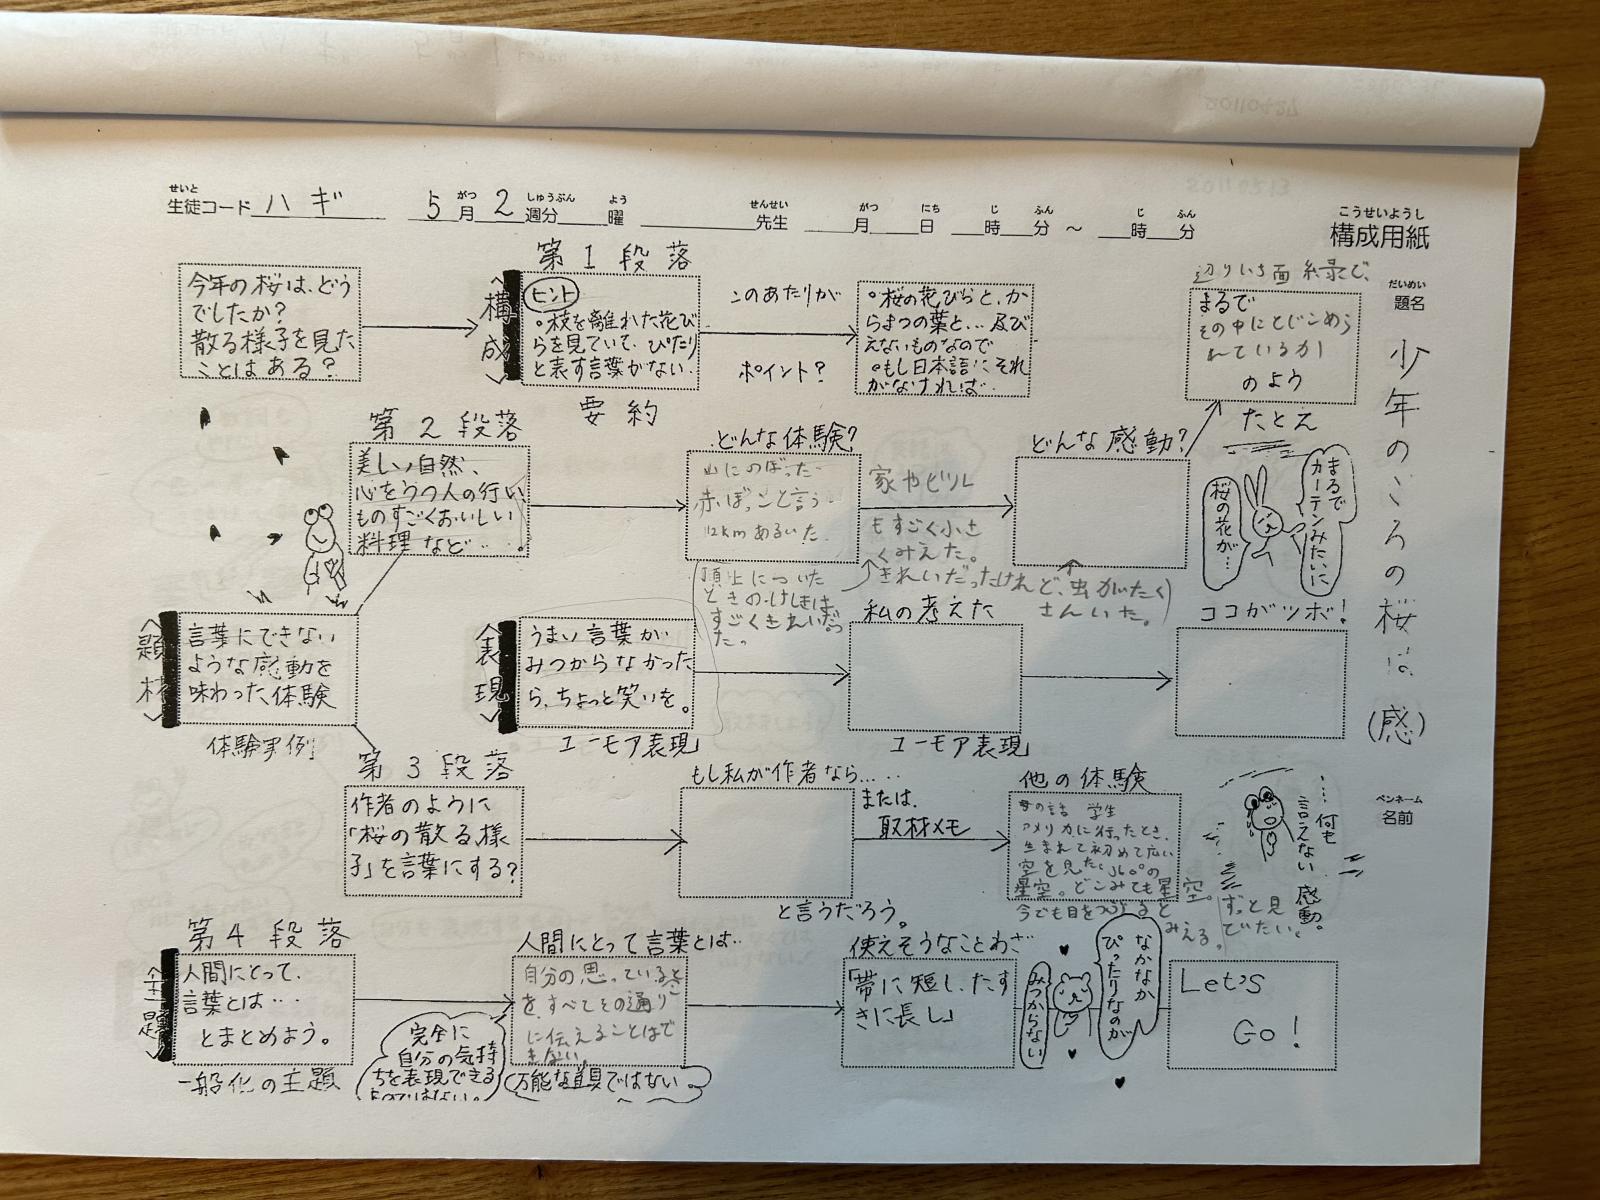 せいと
生徒コード ハギ
がつ しゅうぶん よう
5月2週分 曜
せんせい
先生
がつ にち じ ふん じ ふん
月 日 時 分 ～ 時 分
こうせいようし
構成用紙
だいめい
題名
少年のころの桜は(感)
ペンネーム
名前
今年の桜は、どう
でしたか?
散る様子を見た
ことはある?
第1段落
<構成>
ヒント
•枝を離れた花び
らを見ていて、ぴたり
と表す言葉がない.
要約
このあたりが
ポイント?
•桜の花びらと、か
らまつの葉と... 及び
えないものなので
•もし日本語にそれ
がなければ...
辺りいち面 緑で、
まるで
その中にとじこめら
れているか
のよう
たとえ
まるで
カーテンみたいに
桜の花が…
第2段落
美しい自然、
心をうつ人の行い、
ものすごくおいしい
料理など・・・。
どんな体験?
山にのぼった
赤ぼっこと言う
12km あるいた.
頂上についた
ときのけしきは
すごくきれいだっ
た。
家やビル
もすごく小さ
くみえた。
どんな感動?
(きれいだったけれど、虫がたく
さんいた。)
<題材>
言葉にできない
ような感動を
味わった体験
体験実例
<表現>
うまい言葉が
みつからなかった
ら、ちょっと笑いを。
ユーモア表現
私の考えた
ユーモア表現
ココがツボ!
第3段落
作者のように
「桜の散る様
子」を言葉にする?
もし私が作者なら.....
と言うだろう。
または、
取材メモ
他の体験
母の話 学生
アメリカに行ったとき、
生まれて初めて広い
空を見た。360°の
星空。どこみても星空。
今でも目をつぶると
みえる。
ずっと見
でたい、
…何も
言えない
感動。
第4段落
<主題>
人間にとって、
言葉とは・・・
とまとめよう。
一般化の主題
完全に
自分の気持
ちを表現できる
ものではない。
人間にとって言葉とは…
自分の思っていること
を、すべてその通り
に伝えることはで
きない。
万能な道具ではない。
使えそうなことわざ
「帯に短し、たす
きに長し」
なかなか
ぴったりなのが
みつからない
Let's
Go!